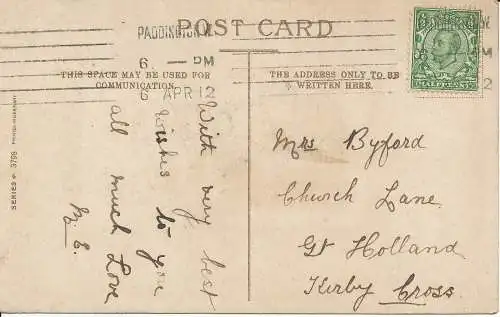 POST CARD
PADDINGTON W.
6. — PM
6 APR 12
THIS SPACE MAY BE USED FOR
COMMUNICATION
THE ADDRESS ONLY TO BE
WRITTEN HERE.
With very best
wishes to you
all much Love
M. E.
Mrs Byford
Church Lane
Gt Holland
Kirby Cross.
SERIES 3798